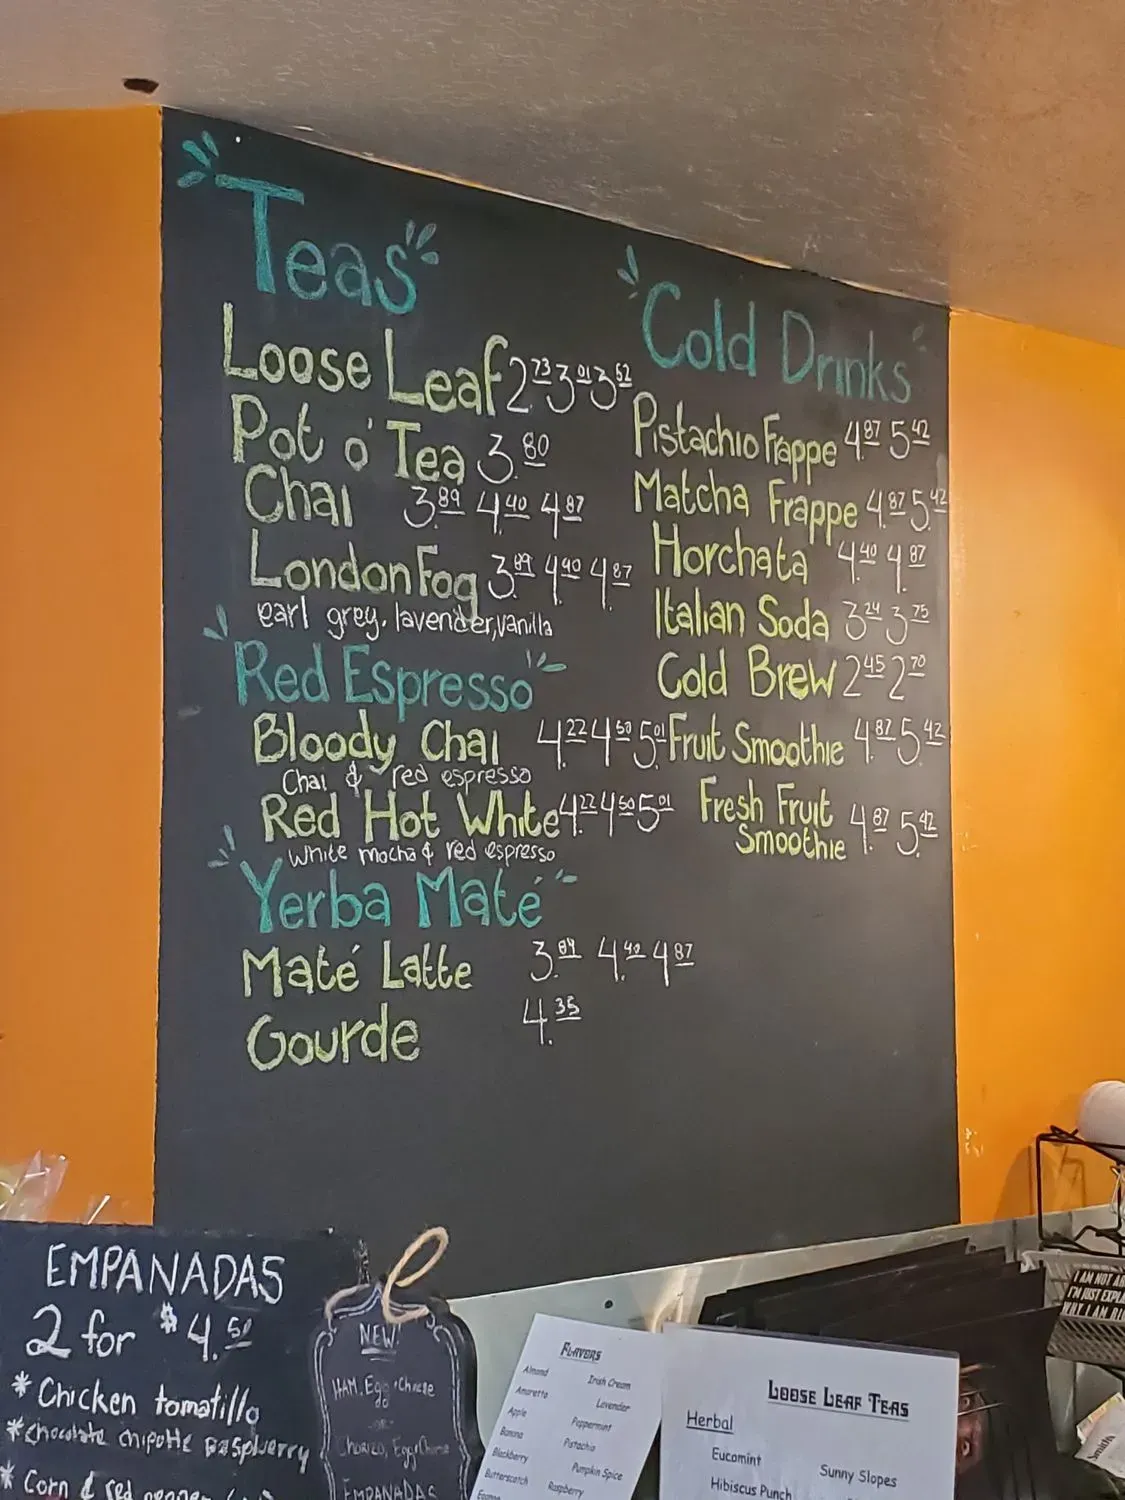 Teas
Loose Leaf 2.73 3.01 3.52
Pot o' Tea 3.80
Chai 3.89 4.40 4.87
London Fog 3.89 4.40 4.87
earl grey, lavender, vanilla
Red Espresso
Bloody Chai 4.22 4.50 5.01
Chai & red espresso
Red Hot White 4.22 4.50 5.01
White mocha & red espresso
Yerba Maté
Maté Latte 3.89 4.40 4.87
Gourde 4.35
Cold Drinks
Pistachio Frappe 4.87 5.42
Matcha Frappe 4.87 5.42
Horchata 4.40 4.87
Italian Soda 3.24 3.75
Cold Brew 2.45 2.70
Fruit Smoothie 4.87 5.42
Fresh Fruit
Smoothie 4.87 5.42
EMPANADAS
2 for $4.50
* Chicken tomatillo
* chocolate chipotle raspberry
* Corn & red
NEW!
HAM, Egg & Cheese
Chorizo, Egg, Cheese
EMPANADAS
Flavors
Almond
Amaretto
Apple
Banana
Blackberry
Butterscotch
Irish Cream
Lavender
Peppermint
Pistachio
Pumpkin Spice
Raspberry
Loose Leaf Teas
Herbal
Eucamint
Hibiscus Punch
Sunny Slopes
I AM NOT
I'M JUST
WHY I AM
Smith